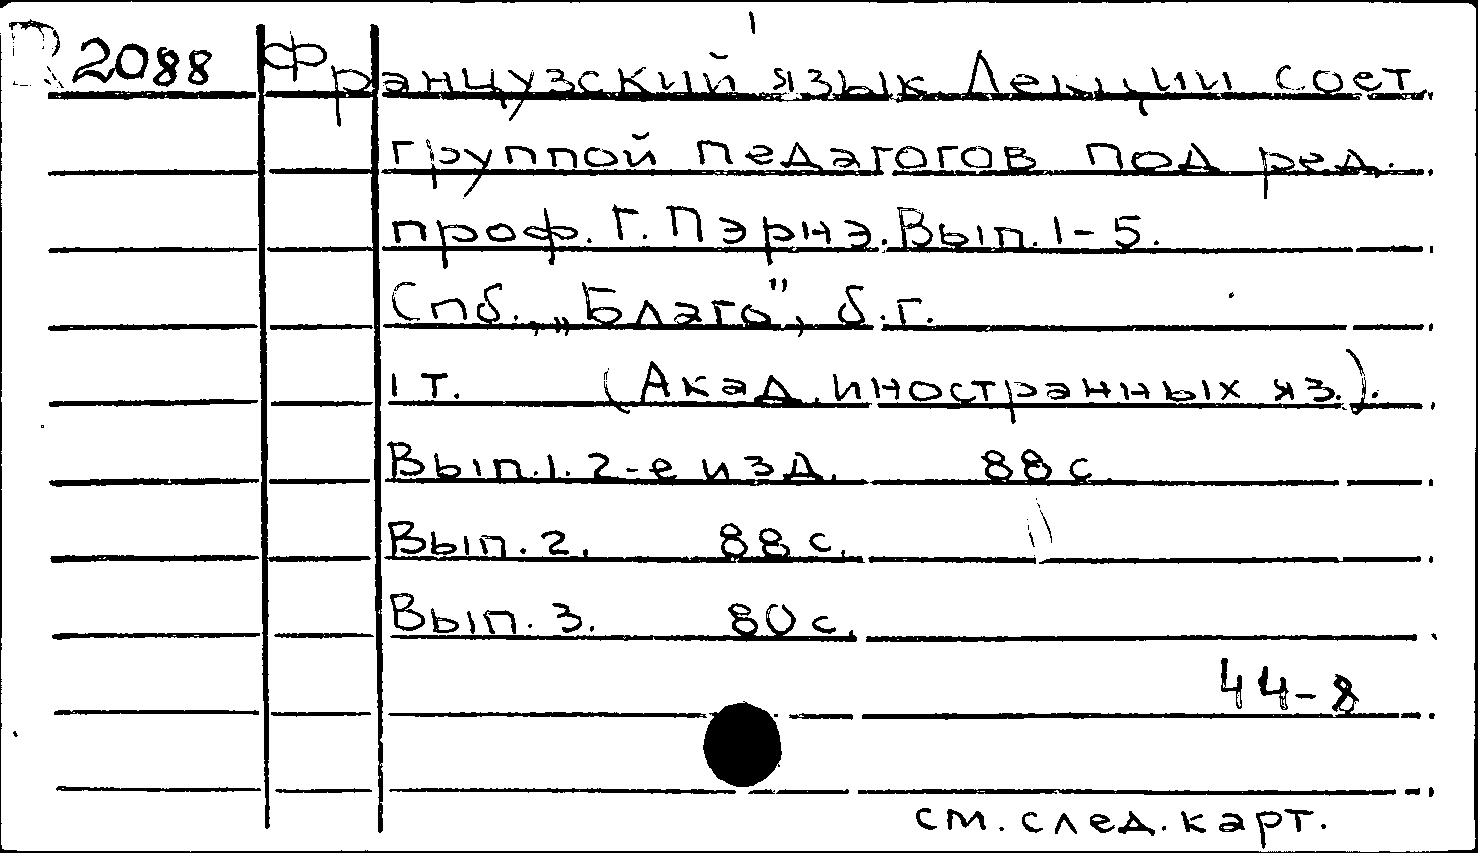 R 2088 Французский язык Лекции сост.
группой педагогов под ред.
проф. Г. Пэрнэ. Вып. 1-5.
Спб., „Благо", б.г.
1 т. (Акад. иностранных яз.).
Вып. 1. 2-е изд. 88 с.
Вып. 2. 88 с.
Вып. 3. 80 с.
44-8
см. след. карт.